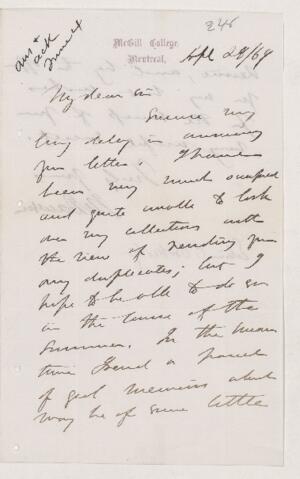 246
McGill College,
Montreal,
Apl 29/69
ans &
ack
June 4
My dear Sir
Excuse my
long delay in answering
your letter. I have
been very much occupied
and quite unable to look
over my collections with
the view of sending you
any duplicates; but I
hope to be able to do so
in the course of the
summer. In the mean
time I send a parcel
of geol memoirs which
may be of some little